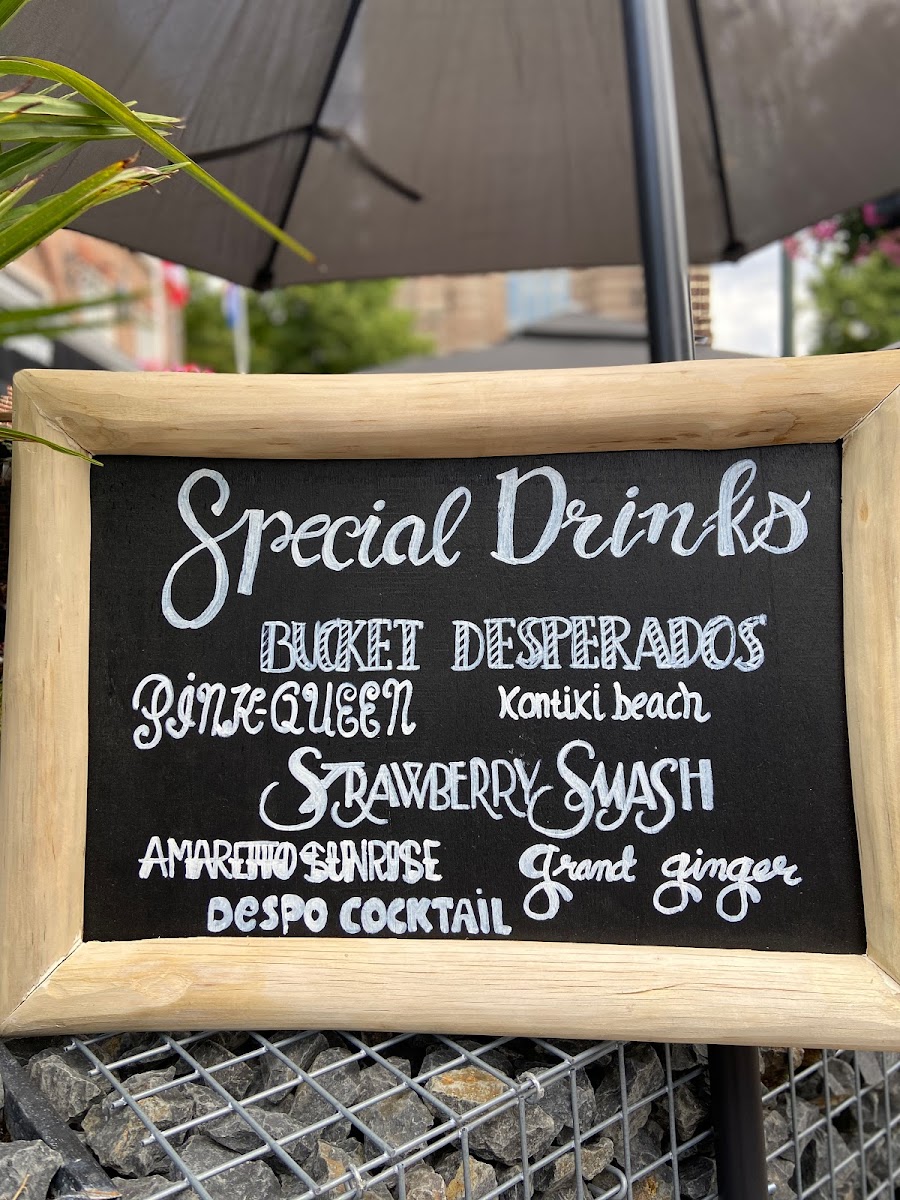 Special Drinks
BUCKET DESPERADOS
PINK-QUEEN Kontiki beach
STRAWBERRY SMASH
AMARETTO SUNRISE grand ginger
DESPO COCKTAIL